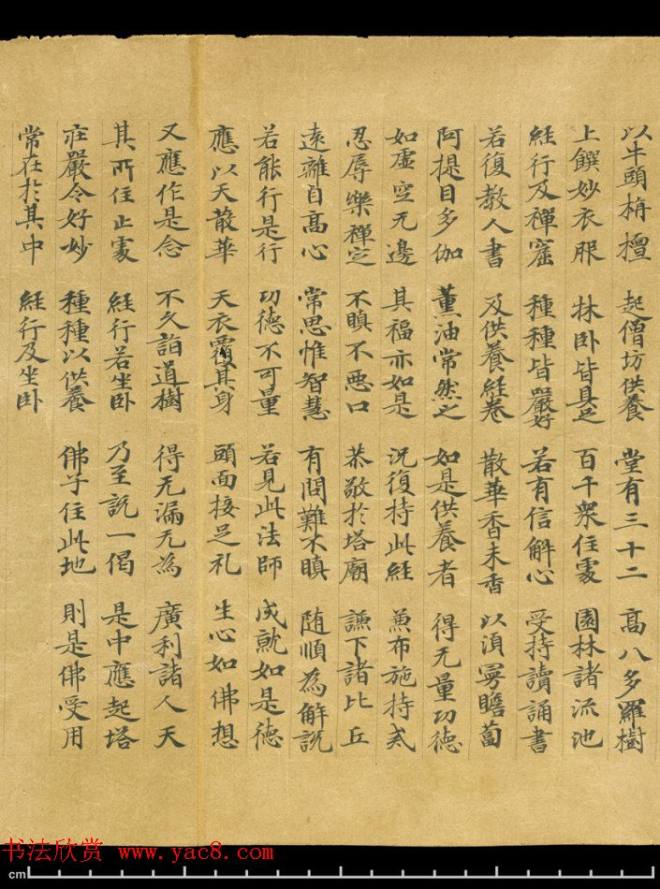 以牛頭栴檀 起僧坊供養 堂有三十二 高八多羅樹
上饌妙衣服 牀卧皆具足 百千衆住處 園林諸流池
經行及禪窟 種種皆嚴好 若有信解心 受持讀誦書
若復教人書 及供養經卷 散華香末香 以湏曼瞻蔔
阿提目多伽 薰油常然之 如是供養者 得无量功德
如虛空无邊 其福亦如是 況復持此經 兼布施持戒
忍辱樂禪定 不瞋不惡口 恭敬於塔廟 謙下諸比丘
遠離自高心 常思惟智慧 有問難不瞋 随順為解說
若能行是行 功德不可量 若見此法師 成就如是德
應以天散華 天衣覆其身 頭面接足礼 生心如佛想
又應作是念 不久詣道樹 得无漏无為 廣利諸人天
其所住止處 經行若坐卧 乃至說一偈 是中應起塔
莊嚴令好妙 種種以供養 佛子住此地 則是佛受用
常在於其中 經行及坐卧
书法欣赏 www.yac8.com
cm